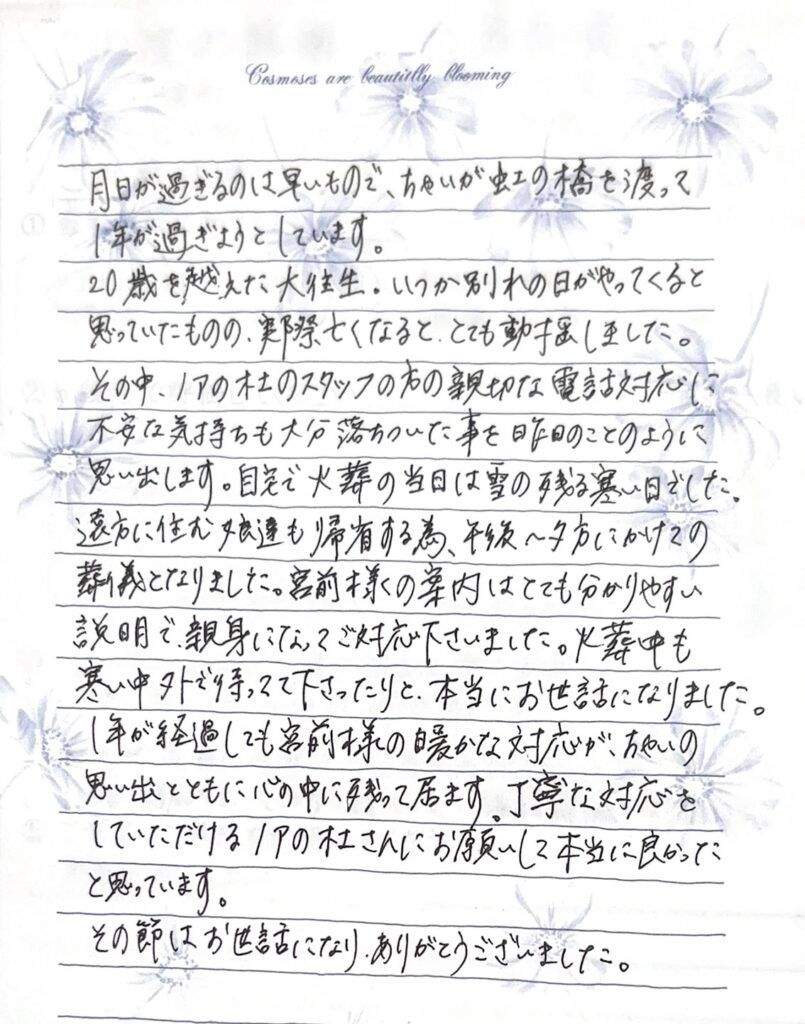 Cosmoses are beautitlly blooming
月日が過ぎるのは早いもので、ちゃいが虹の橋を渡って
1年が過ぎようとしています。
20歳を越えた大往生。いつか別れの日がやってくると
思っていたものの、実際亡くなると、とても動揺しました。
その中、ノアの杜のスタッフの方の親切な電話対応に
不安な気持ちも大分落ちついた事を昨日のことのように
思い出します。自宅で火葬の当日は雪の残る寒い日でした。
遠方に住む娘達も帰省する為、午後〜夕方にかけての
葬儀となりました。宮前様の案内はとても分かりやすい
説明で、親身になってご対応下さいました。火葬中も
寒い中外で待ってて下さったりと、本当にお世話になりました。
1年が経過しても宮前様の暖かな対応が、ちゃいの
思い出とともに心の中に残って居ます。丁寧な対応を
していただけるノアの杜さんにお願いして本当に良かった
と思っています。
その節はお世話になり、ありがとうございました。